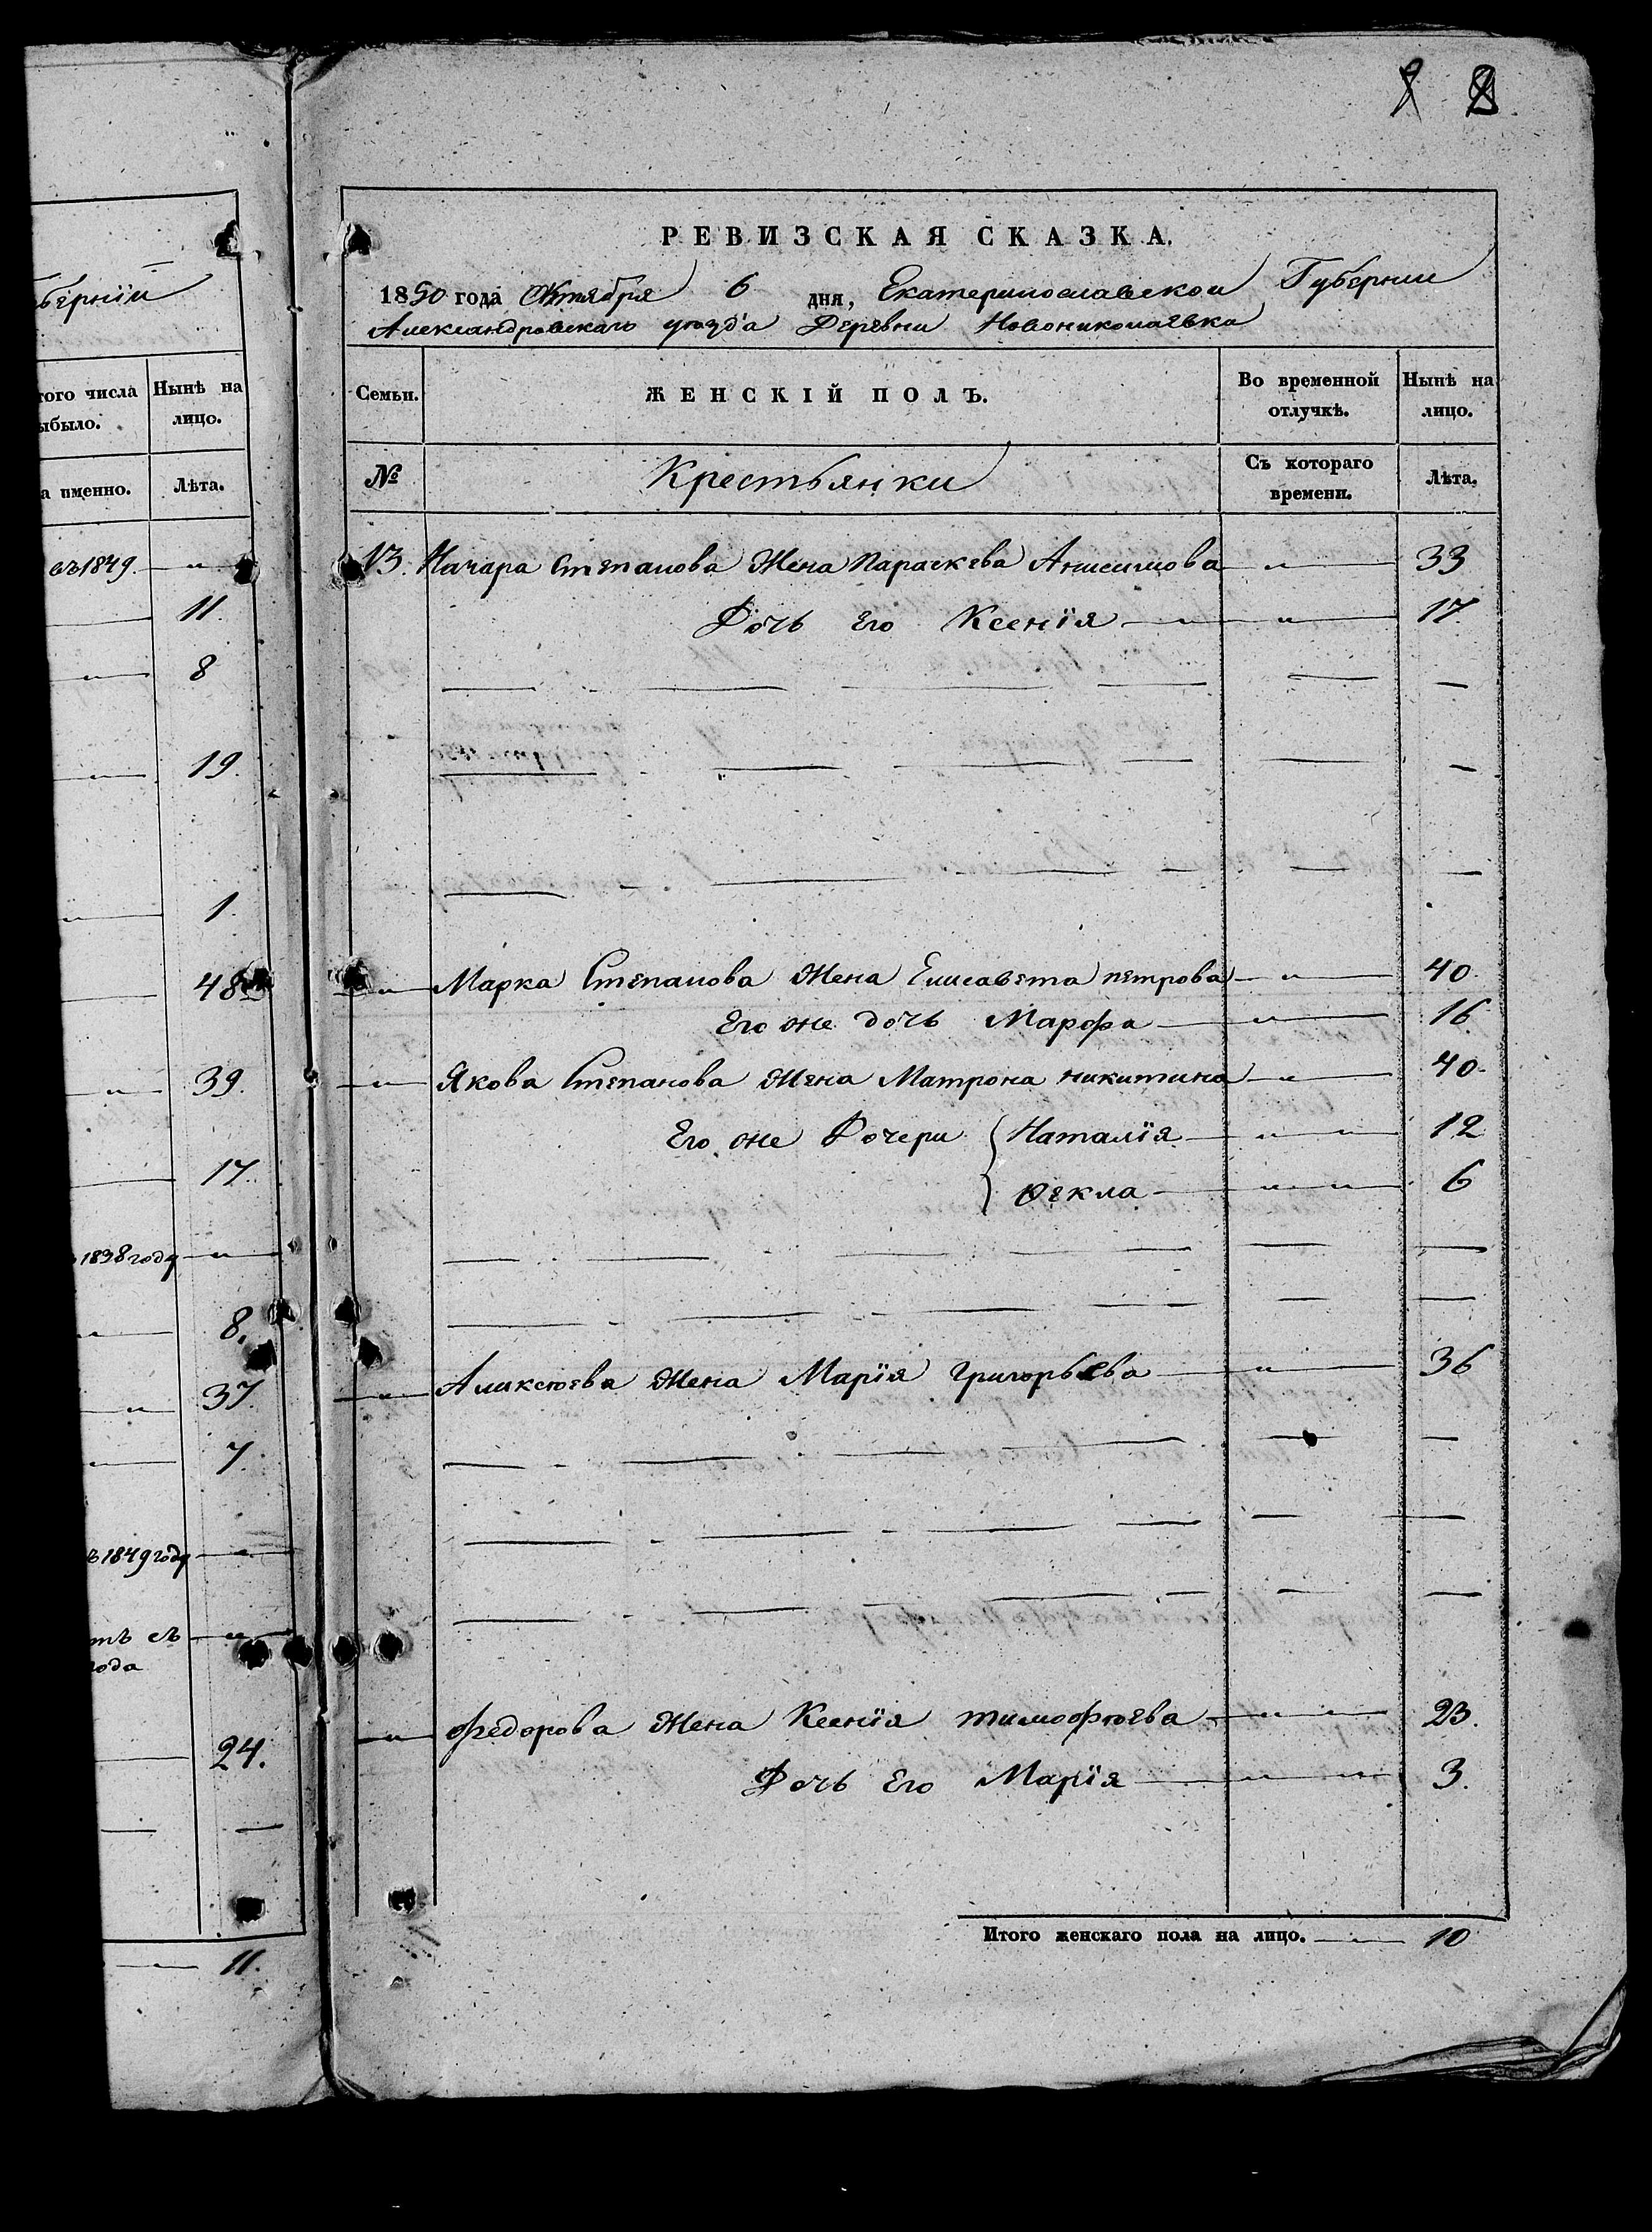 бернии
того числа
ыбыло.
Нынѣ на
лицо.
а именно.
Лѣта.
въ 1849.
11.
8
19.
1.
48
39.
17.
1838 году
8.
37.
7.
ъ 1849 году
тъ съ
года
24.
11.
РЕВИЗСКАЯ СКАЗКА.
1850 года Октября 6 дня, Екатеринославской Губернии
Александровскаго уѣзда Деревни Новониколаевка
Семьи.
ЖЕНСКІЙ ПОЛЪ.
Во временной
отлучкѣ.
Нынѣ на
лицо.
№
Крестьянки
Съ котораго
времени.
Лѣта.
13. Степанова Жена Параскева Анисимова — " — 33
Дочь Его Ксенія — " — 17
— " — Марка Степанова Жена Елисавета петрова — " — 40.
Его же дочь Марфа — " — 16
— " — Якова Степанова Жена Матрона никитина — " — 40.
Его же Дочери { Наталія — " — 12
Фекла — " — 6
— " — Аликсѣева Жена Марія Григорьева — " — 36
— " — Федорова Жена Ксенія тимофѣева — " — 23.
Дочь Его Марія — " — 3.
Итого женскаго пола на лицо. — 10